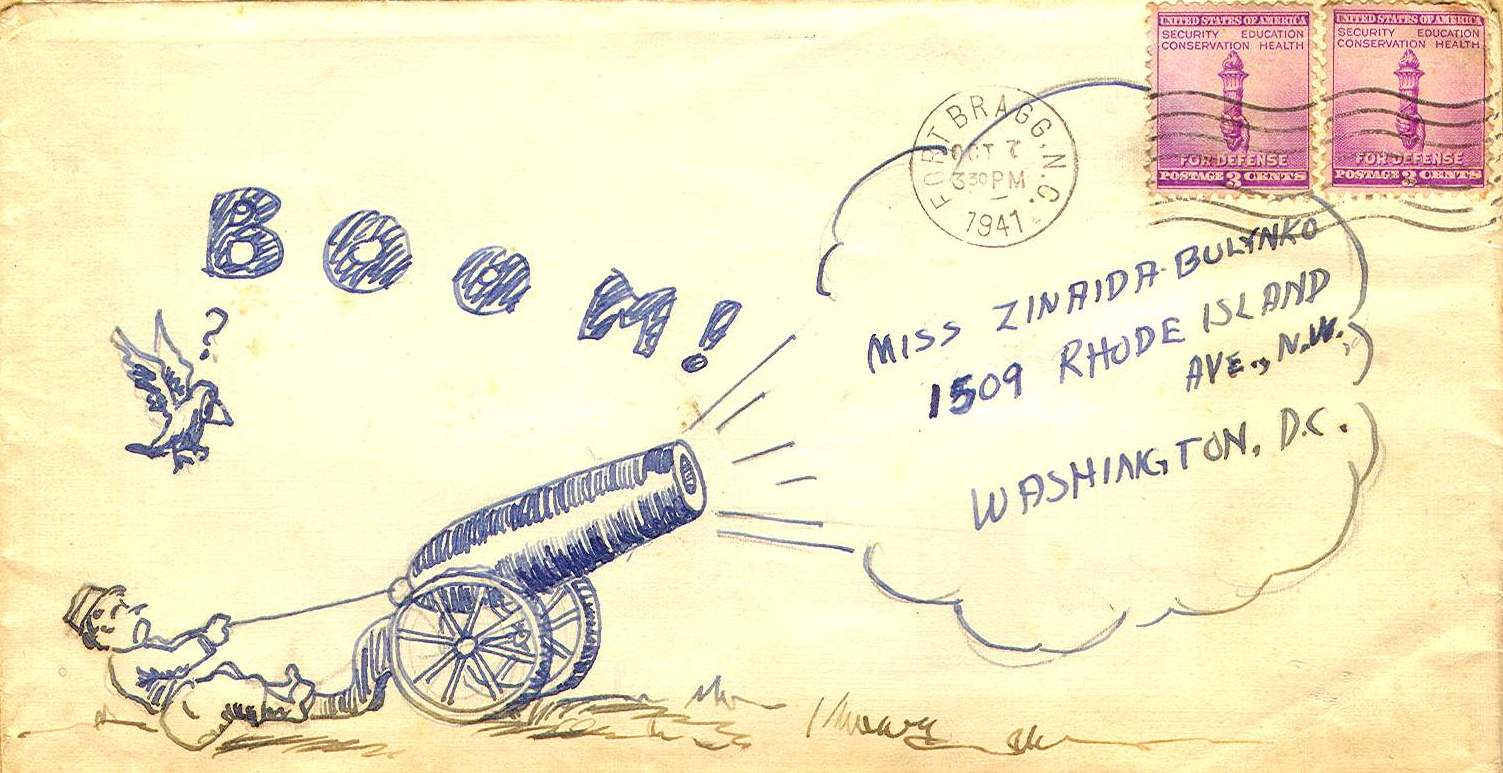 UNITED STATES OF AMERICA
SECURITY EDUCATION
CONSERVATION HEALTH
FOR DEFENSE
POSTAGE 3 CENTS
UNITED STATES OF AMERICA
SECURITY EDUCATION
CONSERVATION HEALTH
FOR DEFENSE
POSTAGE 3 CENTS
FORT BRAGG, N.C.
OCT 7
3 30 PM
1941
BOOM!
?
MISS ZINAIDA BULYNKO
1509 RHODE ISLAND
AVE., N.W.
WASHINGTON, D.C.